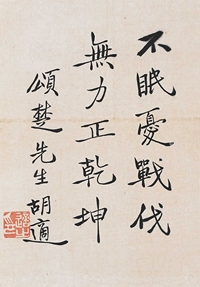 不眠憂戰伐
無力正乾坤
頌楚先生
胡適